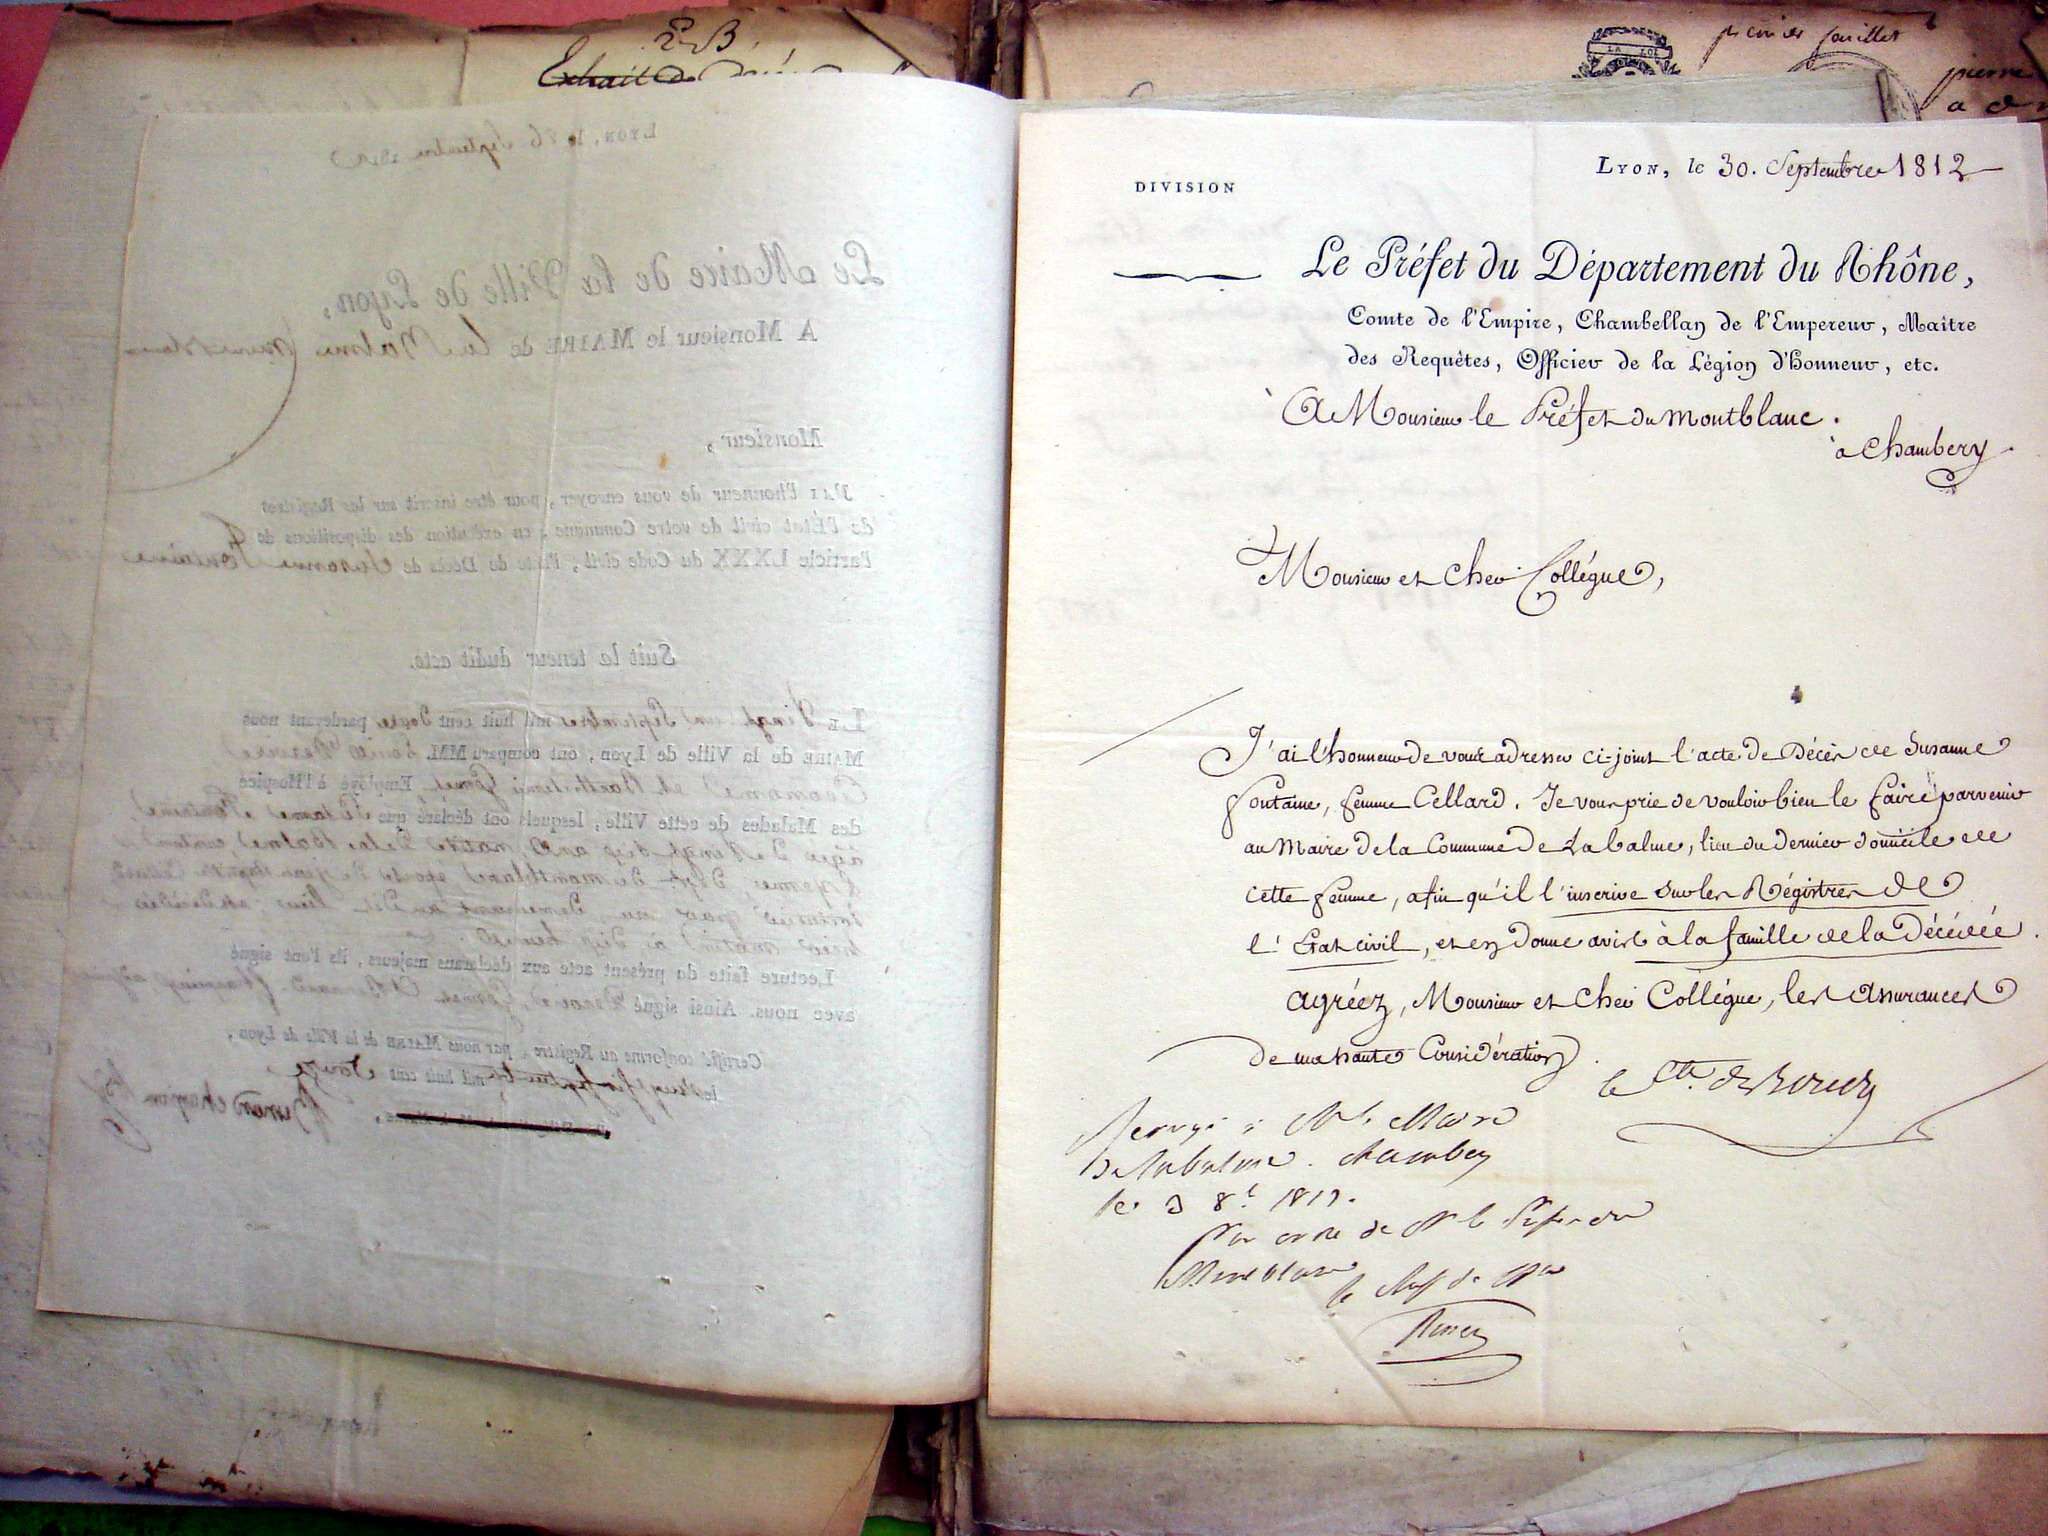 Extrait de
premier feuillet
LA LOI
pierre
Lyon, le 26 Septembre 1812
Le Maire de la Ville de Lyon,
A Monsieur le MAIRE de la Balme
Monsieur,
J'AI l'honneur de vous envoyer, pour être inscrit sur les Registres
de l'État civil de votre Commune, en exécution des dispositions de
l'article LXXX du Code civil, l'Acte de Décès de Susanne Fontaine
Suit la teneur dudit acte.
LE Vingt un Septembre mil huit cent douze pardevant nous
MAIRE de la Ville de Lyon, ont comparu MM. Louis
Econome et Barthelemi Employé à l'Hospice
des Malades de cette Ville, lesquels ont déclaré que Susanne Fontaine
agée de Vingt Sept ans, native De la Balme, canton
D'yenne, Dépt. Du montblanc, épouse de jean
Lecture faite du présent acte aux déclarans majeurs, ils l'ont signé
avec nous. Ainsi signé
Certifié conforme au Registre, par nous MAIRE de la Ville de Lyon,
le Vingt Six Septembre mil huit cent Douze.
DIVISION
Lyon, le 30. Septembre 1812
Le Préfet du Département du Rhône,
Comte de l'Empire, Chambellan de l'Empereur, Maître
des Requêtes, Officier de la Légion d'honneur, etc.
à Monsieur le Préfet du montblanc.
à Chambery
Monsieur et Cher Collégue,
J'ai l'honneur de vous adresser ci-joint l'acte de Décès de Susanne
fontaine, femme Cellard. Je vous prie de vouloir bien le faire parvenir
au Maire de la Commune De Labalme, lieu du dernier domicile de
cette femme, afin qu'il l'inscrive sur les Régistres de
l'Etat civil, et en Donne avis à la famille de la Décédée.
agréez, Monsieur et Cher Collégue, les assurances
de ma haute Considération.
le Cte. de Bondy
Renvoyé à Mr. le Maire
De Labalme. Chambery
le 3 8bre 1812.
Par ordre de Mr. le Préfet du
Montblanc
le Chef de